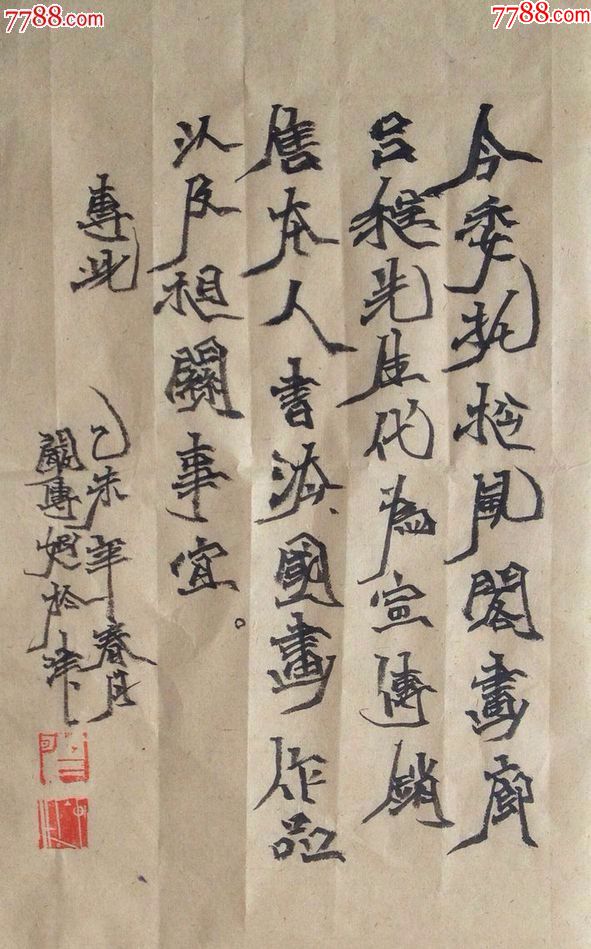 7788.com
7788.com
今委托松風閣畫廊
吕程先生代為宣傳銷
售本人書法國畫作品
以及相關事宜。
專此
乙未年春月
嚴 於津